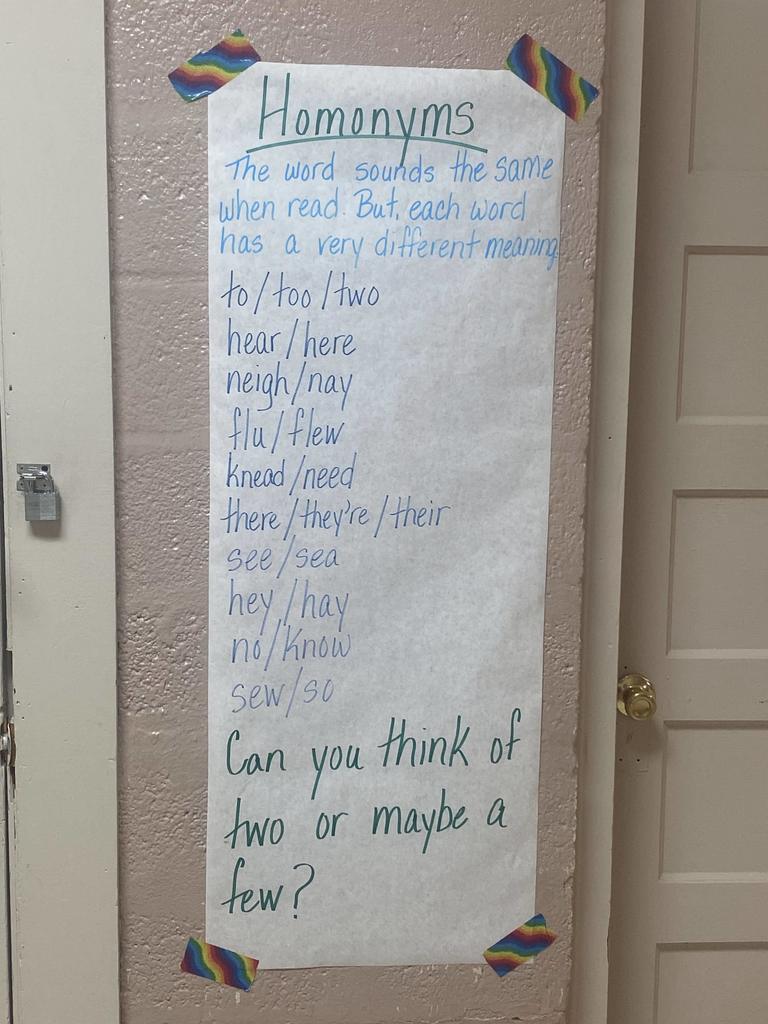 Homonyms
The word sounds the same
when read. But, each word
has a very different meaning
to/too/two
hear/here
neigh/nay
flu/flew
knead/need
there/they're/their
see/sea
hey/hay
no/know
sew/so
Can you think of
two or maybe a
few?